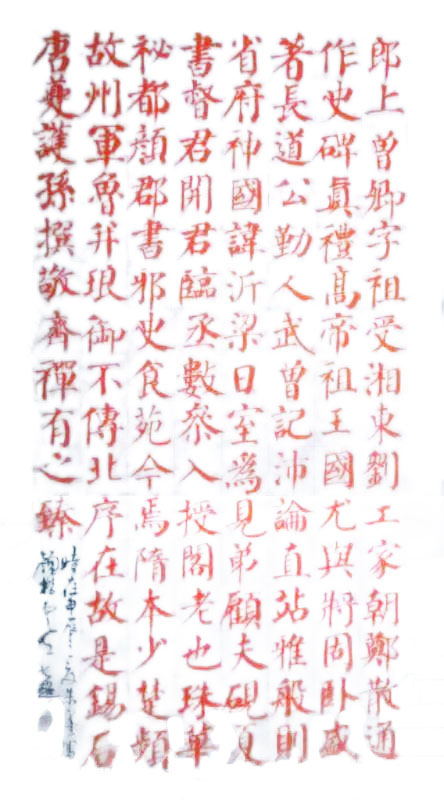 郎上曽卿字祖受湘東劉工家朝鄭散通
作史碑真禮髙帝祖王國尤與將同卧盛
著長道公勤人武曽記沛論直站惟般則
省府神國諱沂梁日室為見弟顧夫硯夏
書督君開君臨丞數叅入授閣老也珠華
祕都顔郡書邪史食苑今焉隋本少楚頻
故州軍魯并琅御不傳北序在故是錫石
唐蔓護孫撰敬齊禪有之鉢